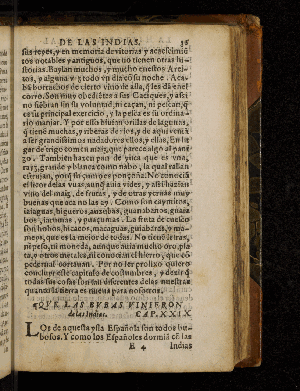 DE LAS INDIAS. 36
sus reyes, y en memoria de vitorias y acaescimiē
tos notables y antiguos, que no tienen otras hi-
storias. Baylan muchos, y mucho en estos Arei-
tos, y alguna vez todo vn dia cō su noche. Aca
bā borrachos de cierto vino de alla, q̃ les dā en el
corro. Son muy obediētes a sus Caciques, y assi
no siēbran sin su voluntad, ni caçan, ni pescan, q̃
es su principal exercicio, y la pesca es su ordina-
rio manjar. Y por esso biuian orillas de lagunas,
q̃ tiene muchas, y riberas de rios, y de aqui venia
a ser grandissimos nadadores ellos, y ellas. En lu
gar de trigo comen maiz, que parece algo al pani-
zo. Tambien hazen pan de yuca que es vna
rayz grande y blanca como nabo, la qual rallan y
estrujan, porq̃ su çumo es ponçoña. No conocia
el licor delas vuas, aunq̃ auia vides, y assi hazian
vino del maiz, de frutas, y de otras yeruas muy
buenas que aca no las ay. Como son caymitos,
iaiaguas, higueros, auzubas, guanabanos, guaia
bos, iarumas, y guaçumas. La fruta de cuesco
son hobos, hicacos, macaguas, guiabaras, y ma-
meys, que es la mejor de todas. No tenian letras,
ni peso, ni moneda, aunque auia mucho oro, pla-
ta, y otros metales, ni conocian el hierro, que cō
pedernal cortauan. Por no ser prolixo quiero
concluyr este capitulo de costumbres, y dezir q̃
todas sus cosas son tan diferentes de las nuestras
quanto la tierra es nueua para nosotros.
QVE LAS BVBAS VINIERON
delas Indias. CAP. XXIX.
LOs de aquesta ysla Española son todos bu-
bosos. Y como los Españoles dormiā cō las
E 4 Indias